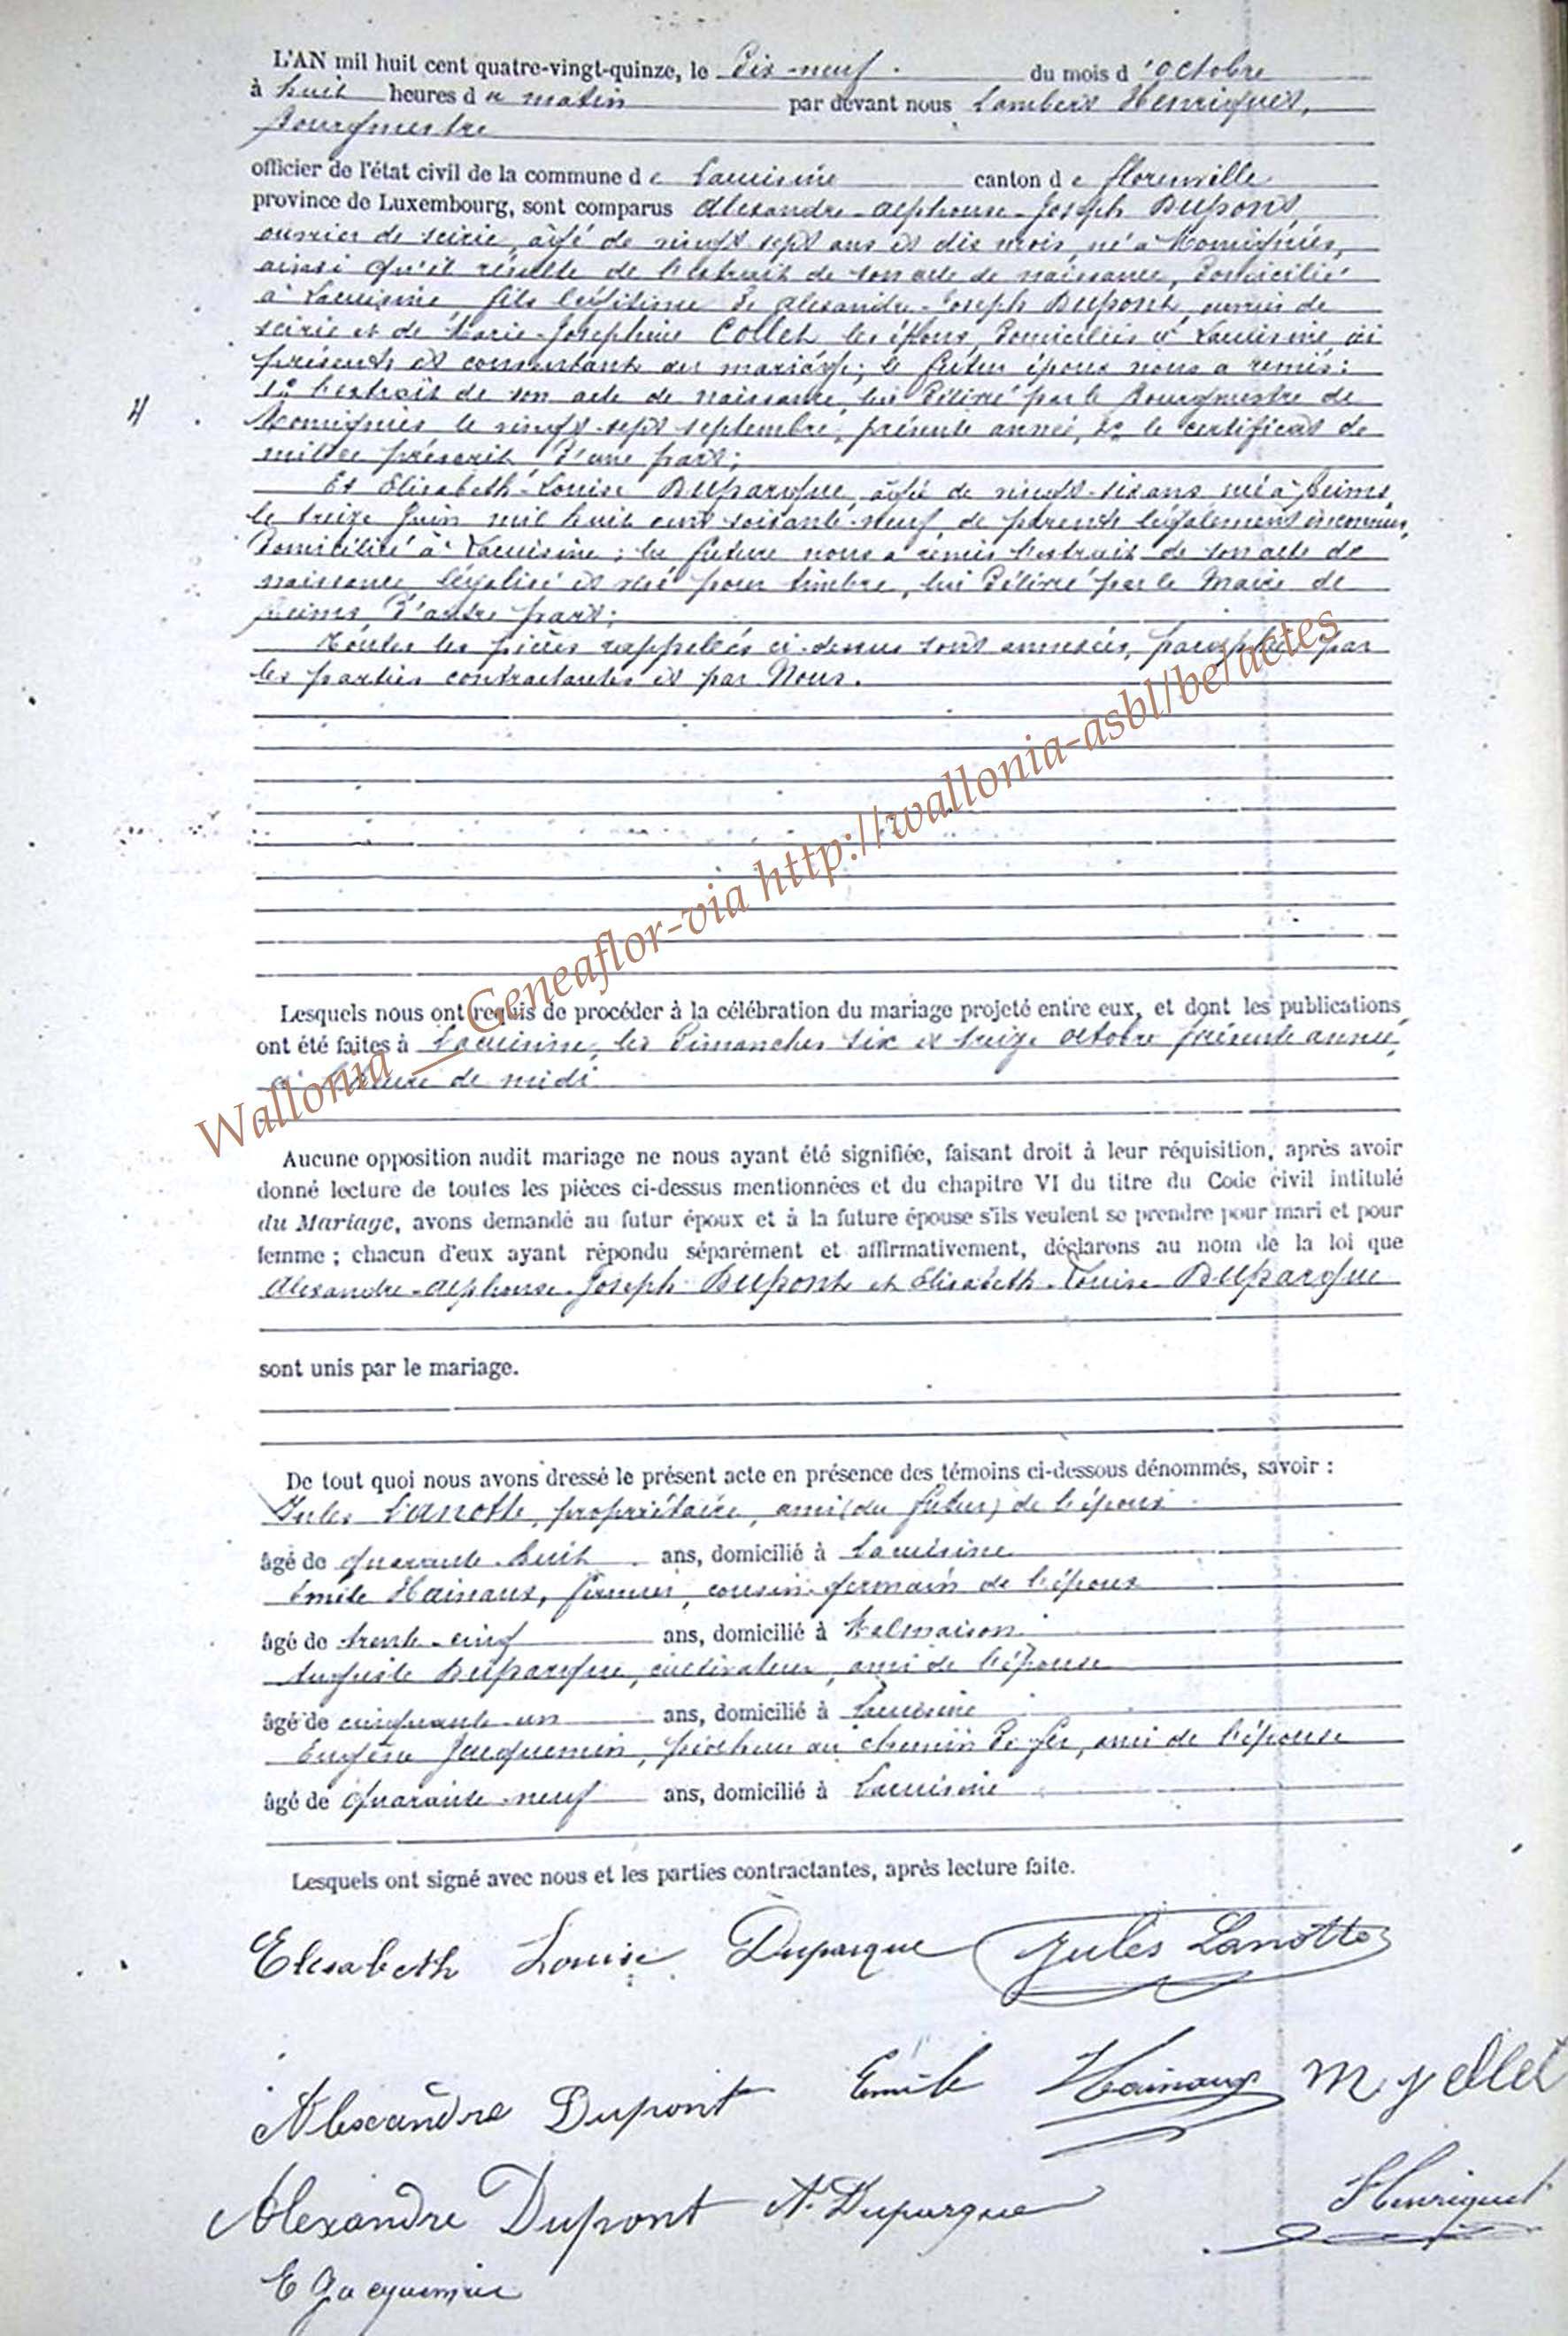 L'AN mil huit cent quatre-vingt-quinze, le Dix-neuf du mois d'octobre
à huit heures du matin par devant nous Lambert Henriquet,
Bourgmestre
officier de l'état civil de la commune de Lacuisine canton de Florenville
province de Luxembourg, sont comparus Alexandre-Alphonse-Joseph Dupont,
ouvrier de scirie, âgé de vingt sept ans et dix mois, né à Momignies,
ainsi qu'il résulte de l'extrait de son acte de naissance, Domicilié
à Lacuisine, fils légitime de Alexandre-Joseph Dupont, ouvrier de
scirie et de Marie-Joséphine Collet les époux, Domiciliés à Lacuisine ici
présents et consentant au mariage; le futur époux nous a remis:
1° l'extrait de son acte de naissance, lui Délivré par le Bourgmestre de
Momignies le vingt-sept septembre, présente année, 2° le certificat de
milice prescrit D'une part;
Et Elisabeth-Louise Duparque, âgée de vingt-six ans née à Reims
le treize Juin mil huit cent soixante-neuf, de parents légalement inconnus,
Domiciliée à Lacuisine; la future nous a remis l'extrait de son acte de
naissance légalisé et visé pour timbre, lui Délivré par le Maire de
Reims, D'autre part;
Toutes les pièces rappelées ci-dessus sont annexées, paraphées par
les parties contractantes et par Nous.
4
Lesquels nous ont requis de procéder à la célébration du mariage projeté entre eux, et dont les publications
ont été faites à Lacuisine, les Dimanches six et treize octobre présente année,
à l'heure de midi
Aucune opposition audit mariage ne nous ayant été signifiée, faisant droit à leur réquisition, après avoir
donné lecture de toutes les pièces ci-dessus mentionnées et du chapitre VI du titre du Code civil intitulé
du Mariage, avons demandé au futur époux et à la future épouse s'ils veulent se prendre pour mari et pour
femme ; chacun d'eux ayant répondu séparément et affirmativement, déclarons au nom de la loi que
Alexandre-Alphonse-Joseph Dupont et Elisabeth-Louise Duparque
sont unis par le mariage.
De tout quoi nous avons dressé le présent acte en présence des témoins ci-dessous dénommés, savoir :
Jules Lanotte, propriétaire, ami (du futur) de l'époux
âgé de quarante-huit ans, domicilié à Lacuisine
Emile Hainaux, fermier, cousin-germain de l'époux
âgé de trente-cinq ans, domicilié à Malmaison
Auguste Duparque, cultivateur, ami de l'épouse
âgé de cinquante-un ans, domicilié à Lacuisine
Eugène Jacquemin, piocheur au chemin De fer, ami de l'épouse
âgé de quarante-neuf ans, domicilié à Lacuisine
Lesquels ont signé avec nous et les parties contractantes, après lecture faite.
Elisabeth Louise Duparque Jules Lanotte
Alexandre Dupont Emile Hainaux
Alexandre Dupont A. Duparque Henriquet
E Jacquemin
Wallonia _ Geneaflor-via http://wallonia-asbl/be/actes